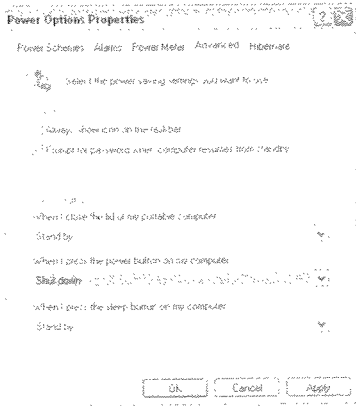 Power Options Properties
Power Schemes Alarms Power Meter Advanced Hibernate
Select the power-saving settings you want to use.
Always show icon on the taskbar
Prompt for password when computer resumes from standby
When I close the lid of my portable computer
Stand by
When I press the power button on my computer
Shut down
When I press the sleep button on my computer
Stand by
OK Cancel Apply